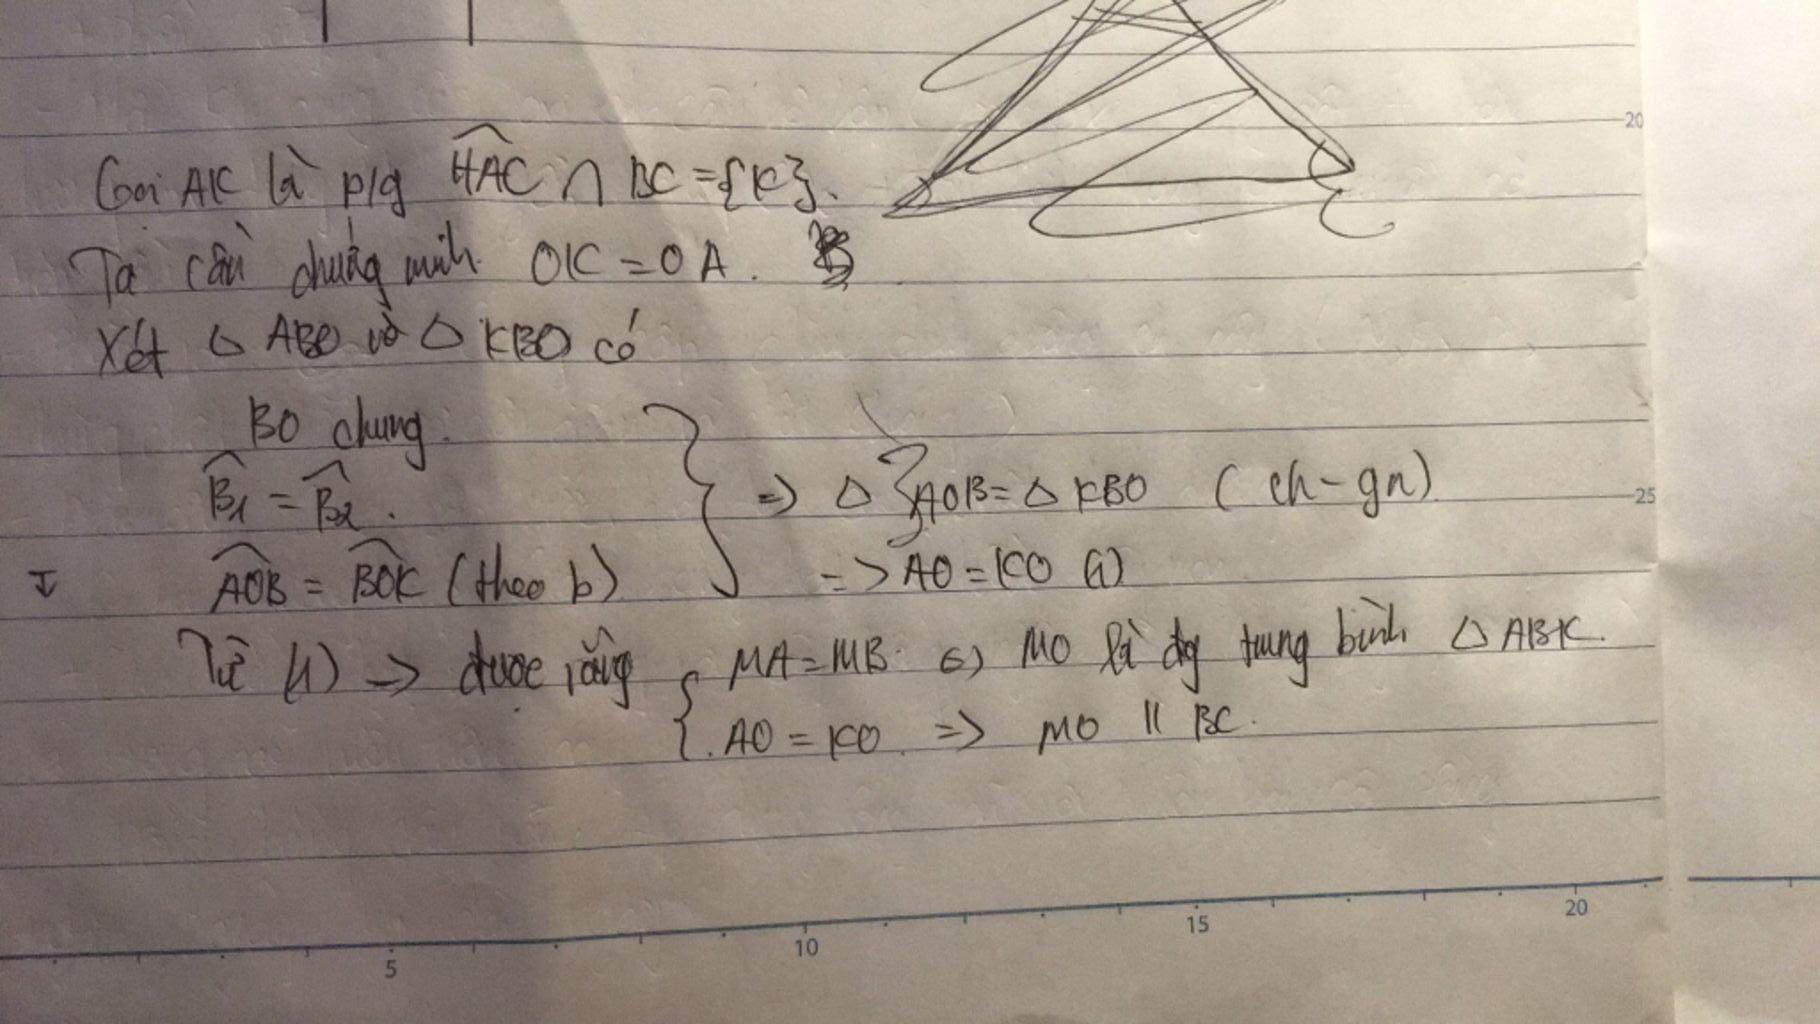 20
Gọi AK là p/g HAC ∩ BC = {K}.
Ta cần chứng minh OK = OA.
Xét Δ ABO và Δ KBO có
BO chung.
B1 = B2.
AOB = BOK (theo b)
=> Δ AOB = Δ KBO (ch - gn)
25
=> AO = KO (1)
Từ (1) => được rằng
MA = MB <=> MO là đg trung bình Δ ABK.
AO = KO => MO || BC.
5 10 15 20